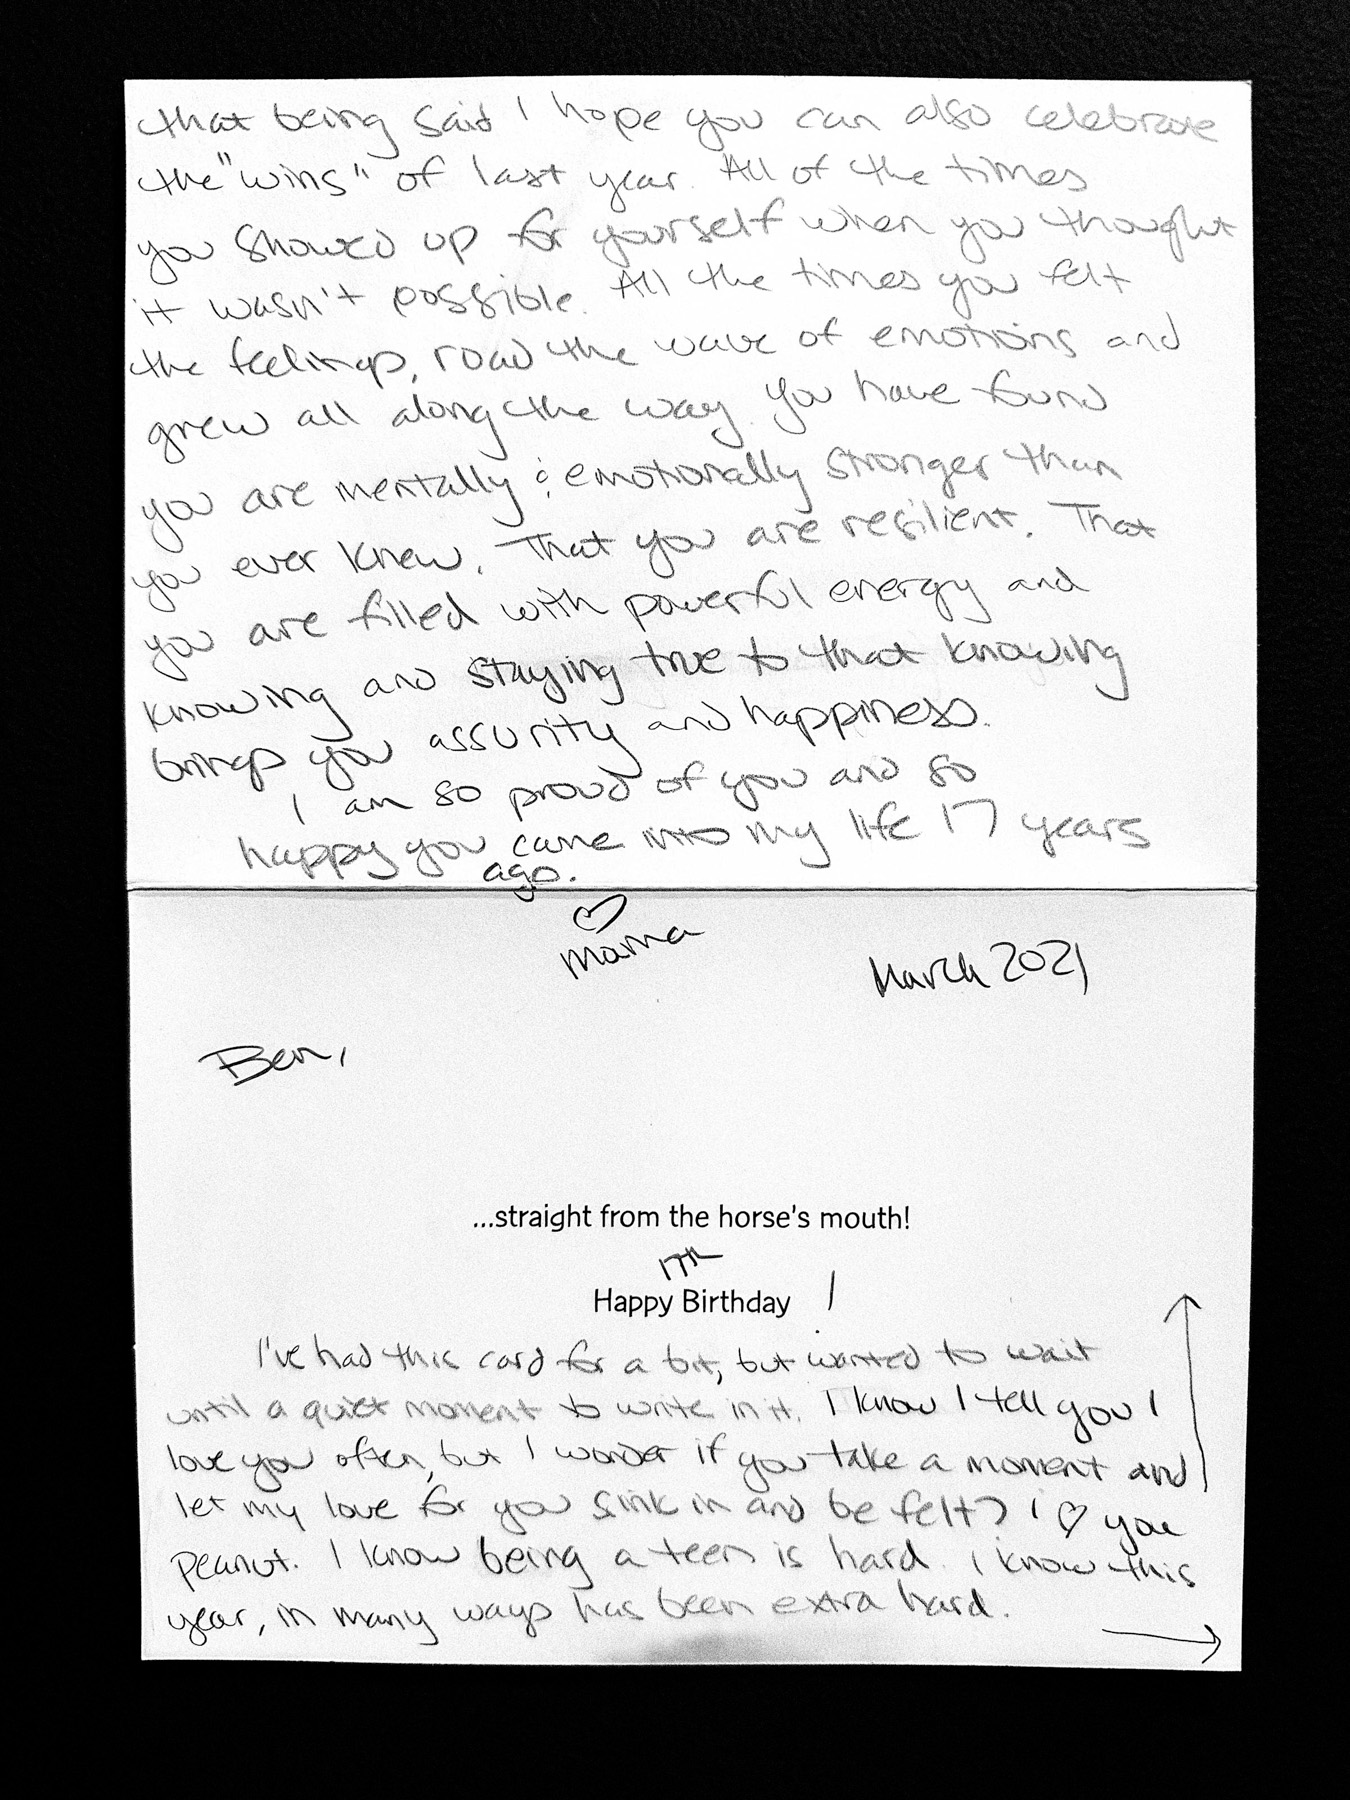 that being said I hope you can also celebrate
the "wins" of last year. All of the times
you showed up for yourself when you thought
it wasn't possible. All the times you felt
the feelings, road the wave of emotions and
grew all along the way. You have found
you are mentally & emotionally stronger than
you ever knew. That you are resilient. That
you are filled with powerful energy and
knowing and staying true to that knowing
brings you assurity and happiness.
I am so proud of you and so
happy you came into my life 17 years
ago.
♡
mama
March 2021
Ben,
...straight from the horse's mouth!
17th
Happy Birthday !
I've had this card for a bit, but wanted to wait
until a quiet moment to write in it. I know I tell you I
love you often, but I wonder if you take a moment and
let my love for you sink in and be felt? I ♡ you
peanut. I know being a teen is hard. I know this
year, in many ways has been extra hard.